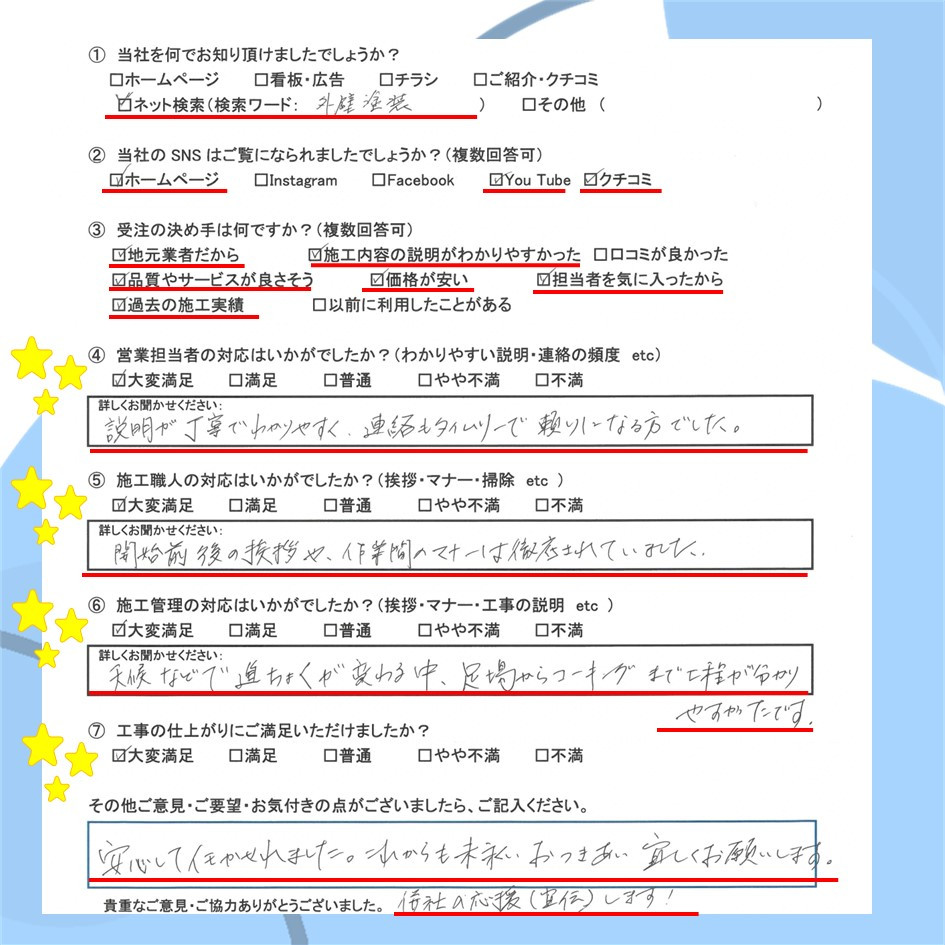 ① 当社を何でお知り頂けましたでしょうか？
□ホームページ □看板・広告 □チラシ □ご紹介・クチコミ
☑ネット検索（検索ワード： 外壁塗装 ） □その他（ ）
② 当社の SNS はご覧になられましたでしょうか？（複数回答可）
☑ホームページ □Instagram □Facebook ☑You Tube ☑クチコミ
③ 受注の決め手は何ですか？（複数回答可）
☑地元業者だから ☑施工内容の説明がわかりやすかった □口コミが良かった
☑品質やサービスが良さそう ☑価格が安い ☑担当者を気に入ったから
☑過去の施工実績 □以前に利用したことがある
④ 営業担当者の対応はいかがでしたか？（わかりやすい説明・連絡の頻度 etc）
☑大変満足 □満足 □普通 □やや不満 □不満
詳しくお聞かせください：
説明が丁寧でわかりやすく、連絡もタイムリーで頼りになる方でした。
⑤ 施工職人の対応はいかがでしたか？（挨拶・マナー・掃除 etc ）
☑大変満足 □満足 □普通 □やや不満 □不満
詳しくお聞かせください：
開始前後の挨拶や、作業間のマナーは徹底されていました。
⑥ 施工管理の対応はいかがでしたか？（挨拶・マナー・工事の説明 etc ）
☑大変満足 □満足 □普通 □やや不満 □不満
詳しくお聞かせください：
天候などで進ちょくが変わる中、足場からコーキングまで工程が分かり
やすかったです。
⑦ 工事の仕上がりにご満足いただけましたか？
☑大変満足 □満足 □普通 □やや不満 □不満
その他ご意見・ご要望・お気付きの点がございましたら、ご記入ください。
安心して任せられました。これからも末永いおつきあい宜しくお願いします。
貴重なご意見・ご協力ありがとうございました。 倖社の応援（宣伝）します！